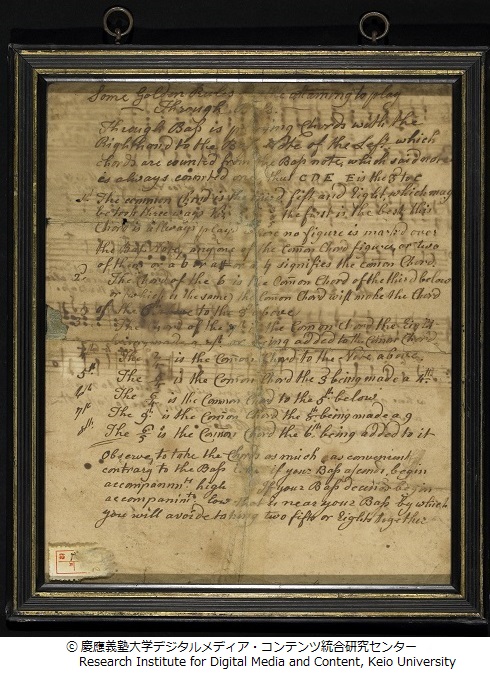 Some Golden Rules for attaining to play
Through
Through Baſs is playing Chords with the
Righthand to the Baſs Note of the Left which
Chords are counted from the Baſs note, which said note
is always counted one thus C D E E is the 3d to C
1st The common Chord is the third fift and Eight, which may
be the first is the best this
Chord is always play'd where no figure is mark'd over
the Baſs Note, any one of the Comon Chord figures, or two
of them signifys the comon Chord
2d The Chord of the 6 is the Comon Chord of the third below
or which is the same the Comon Chord wist make the Chord
3 of the to the 3
The Chord of the is the Comon Chord the Eight
being made a or being added to the Comon Chord
4th The 2 is the Comon Chord to the Note above
5th The 4 is the Comon Chord the 3 being made a 4th
6th The 6 4 is the Common Chord to the 5th below
7th The 9th is the Comon Chord the 8th being made a 9
8th The 6 5 is the Comon Chord the 6th being added to it
Observe to take the Chords as much as convenient
contrary to the Baſs if your Baſs ascend, begin
accompanimts high If your Baſs decend begin
accompanimts low that is near your Baſs by which
you will avoide two fifts or Eights together
ⓒ 慶應義塾大学デジタルメディア・コンテンツ統合研究センター
Research Institute for Digital Media and Content, Keio University